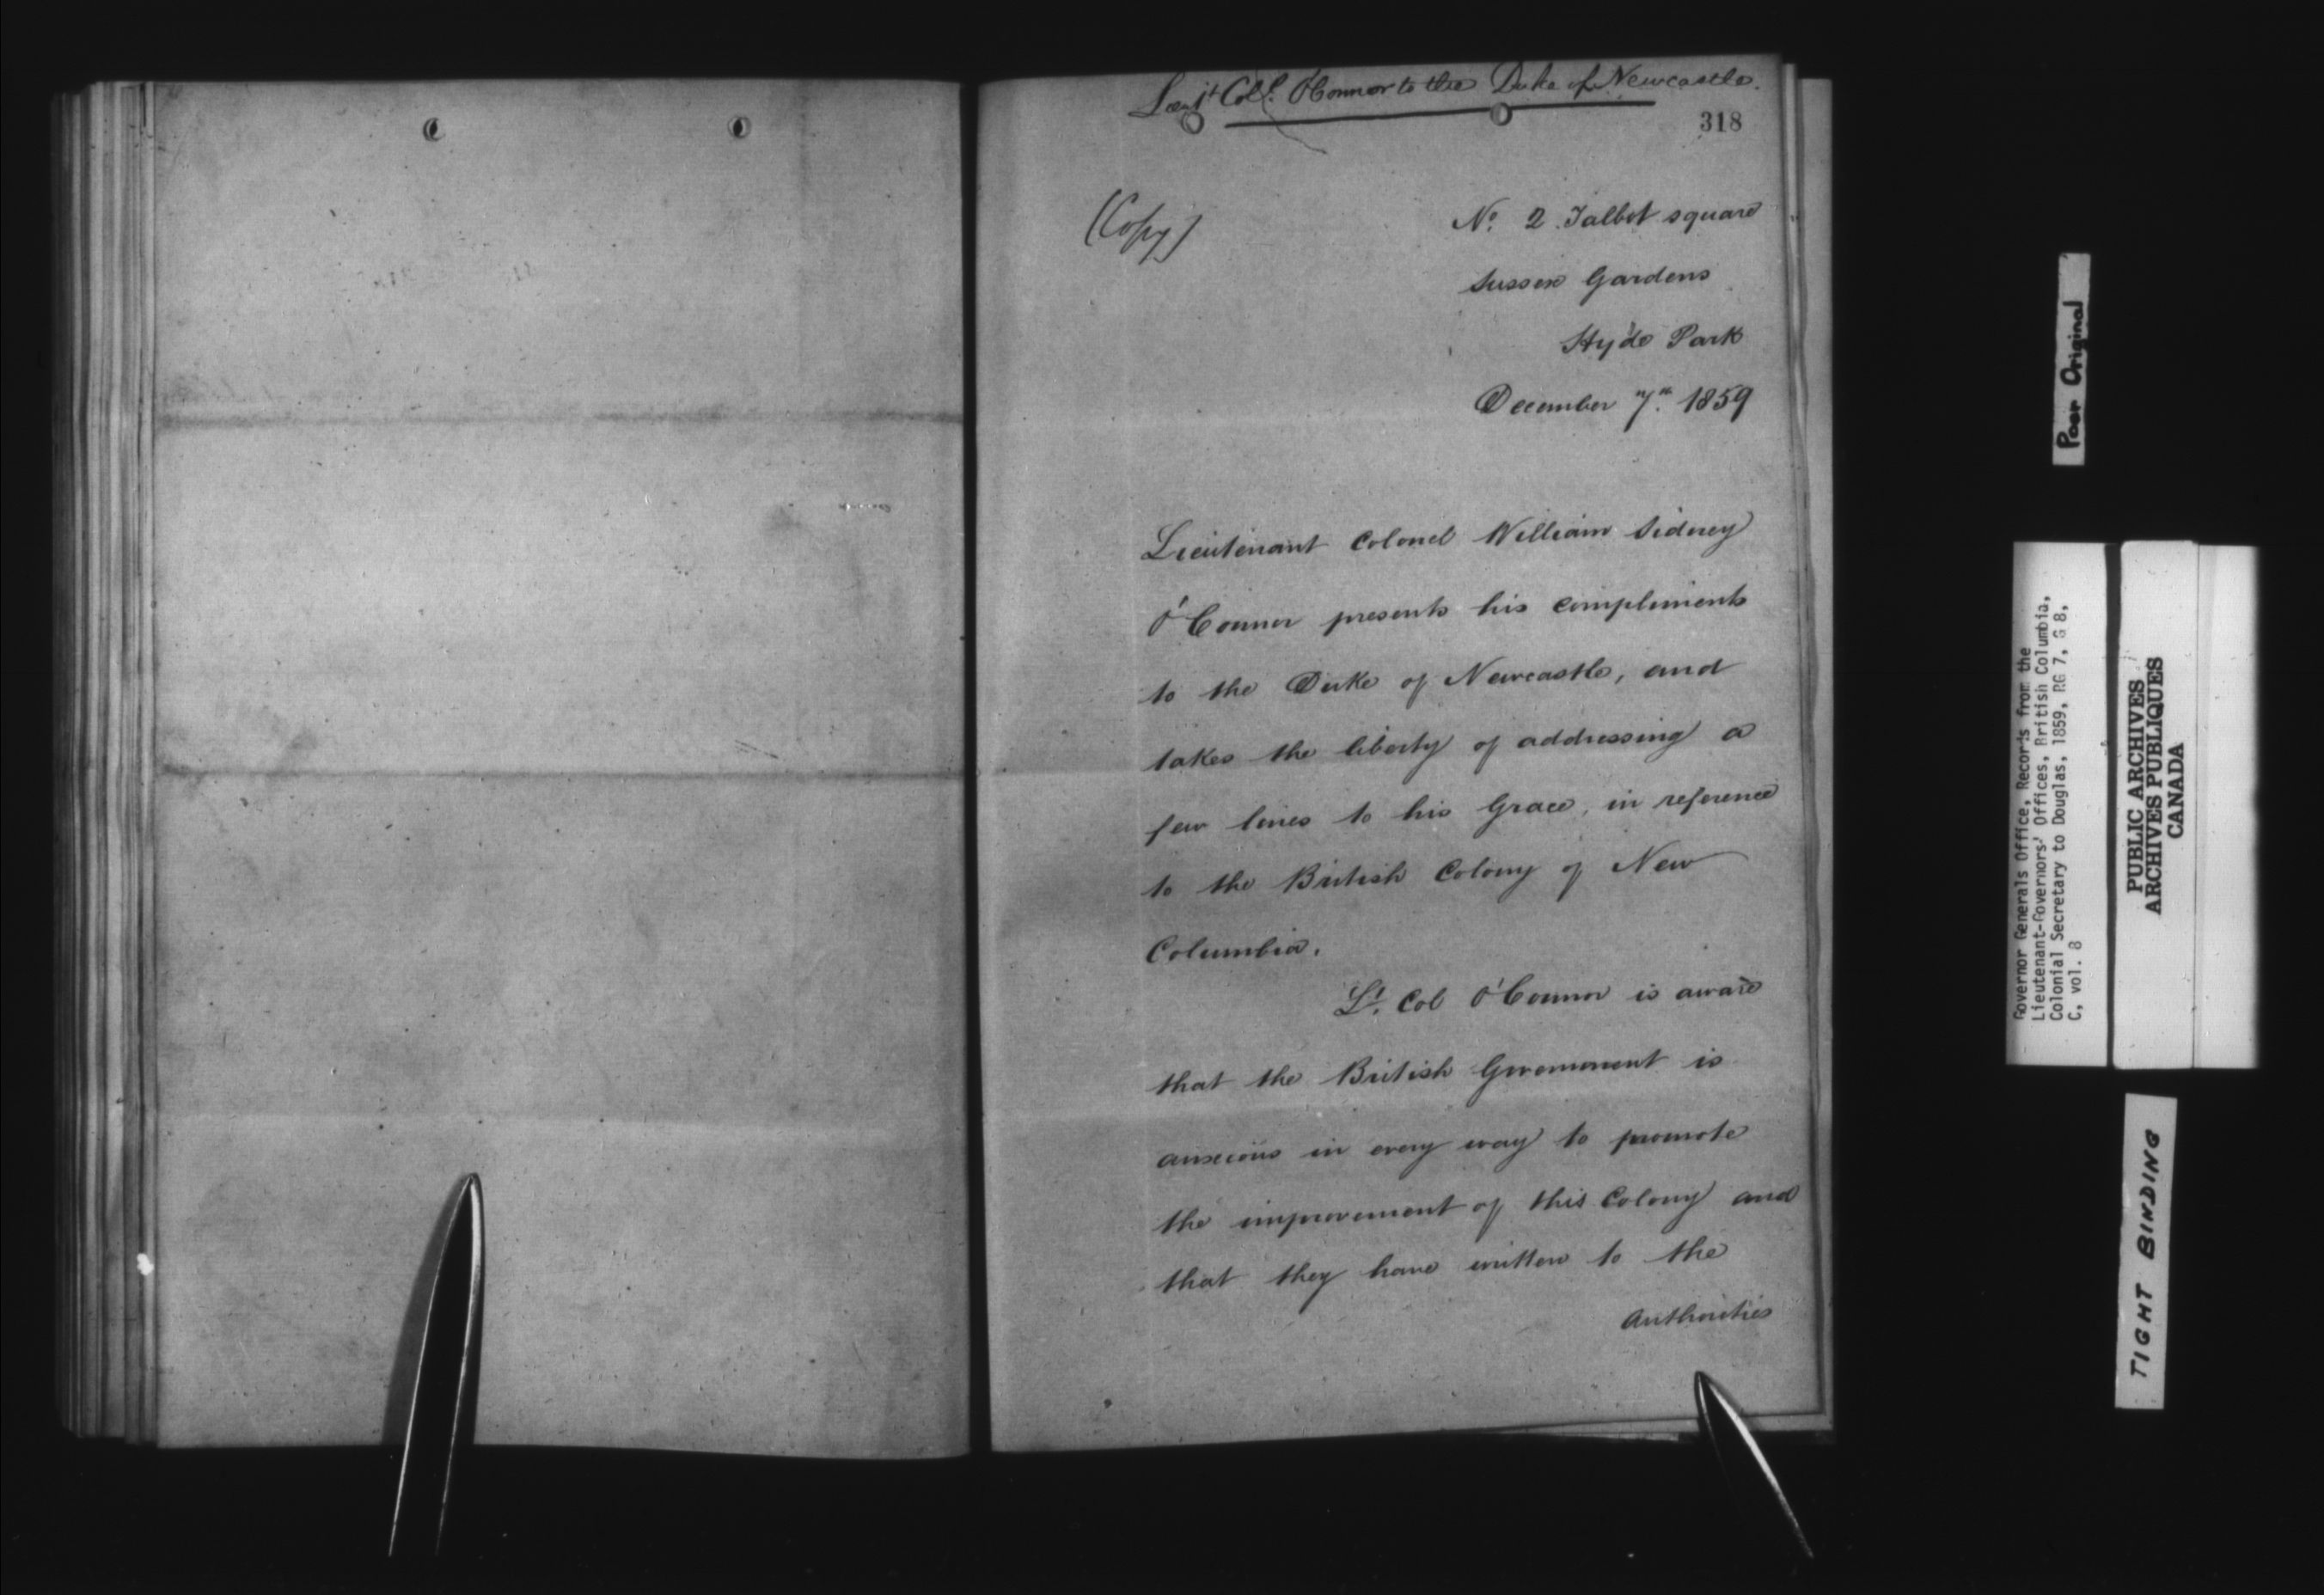 Lieut Coll. O'Connor to the Duke of Newcastle.
318
(Copy)
No. 2 Talbot square
Sussex Gardens
Hyde Park
December 7th. 1859
Lieutenant Colonel William Sidney
O'Connor presents his compliments
to the Duke of Newcastle, and
takes the liberty of addressing a
few lines to his Grace, in reference
to the British Colony of New
Columbia.
Lt. Col O'Connor is aware
that the British Government is
anxious in every way to promote
the improvement of this Colony and
that they have written to the
Authorities
Poor Original
Governor Generals Office, Records from the
Lieutenant-Governors' Offices, British Columbia,
Colonial Secretary to Douglas, 1859, RG 7, G 8,
C, vol. 8
PUBLIC ARCHIVES
ARCHIVES PUBLIQUES
CANADA
TIGHT BINDING